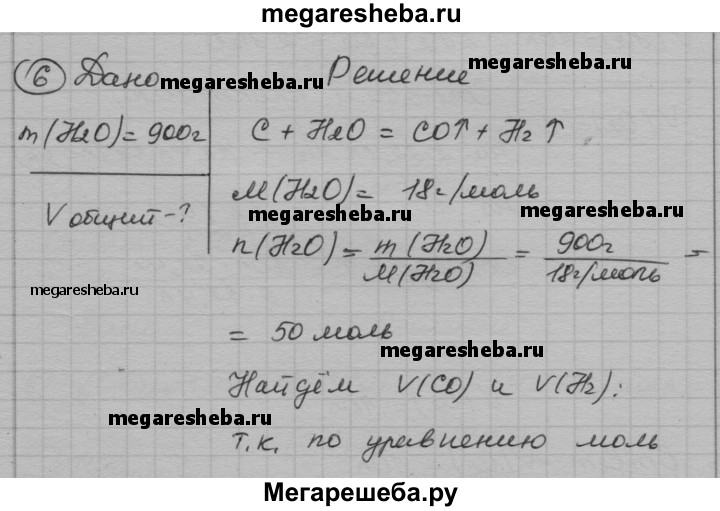 megaresheba.ru
6 Дано megaresheba.ru Решение megaresheba.ru
m(H2O)=900г C + H2O = CO↑ + H2↑
M(H2O)= 18г/моль
megaresheba.ru megaresheba.ru
V общий-? n(H2O)= m(H2O)/M(H2O) = 900г/18г/моль =
megaresheba.ru
= 50 моль
megaresheba.ru
Найдём V(CO) и V(H2):
megaresheba.ru
т.к. по уравнению моль
Мегарешеба.ру